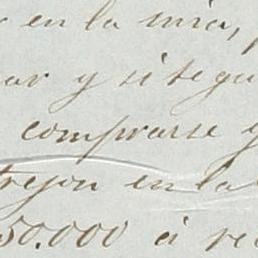 en la mia,
ar y si se gu
comprarse y
trejon en la
50.000 á re